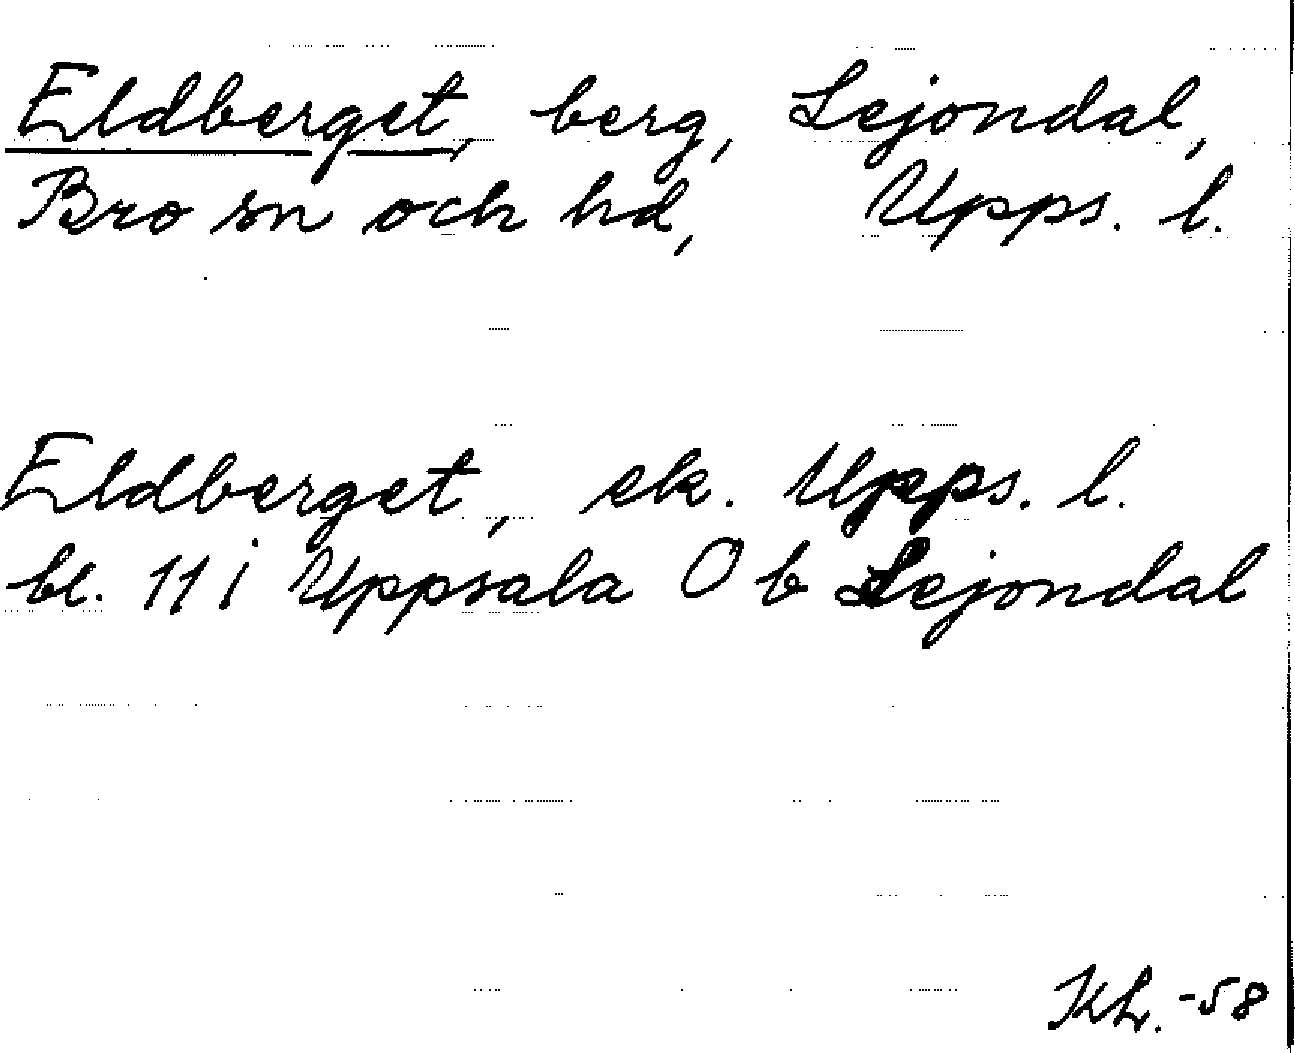 Eldberget, berg, Lejondal,
Bro sn och hd, Upps. l.
Eldberget, ek. Upps. l.
bl. 11 i Uppsala O b Lejondal
KL. -58